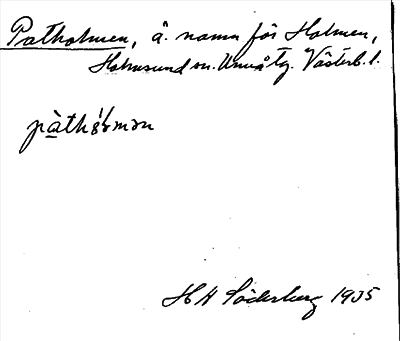 Patholmen, ä. namn för Holmen,
Holmsund sn. Umeå tg. Västerb. l.
pàthɷ́lmən
H H Söderberg 1935